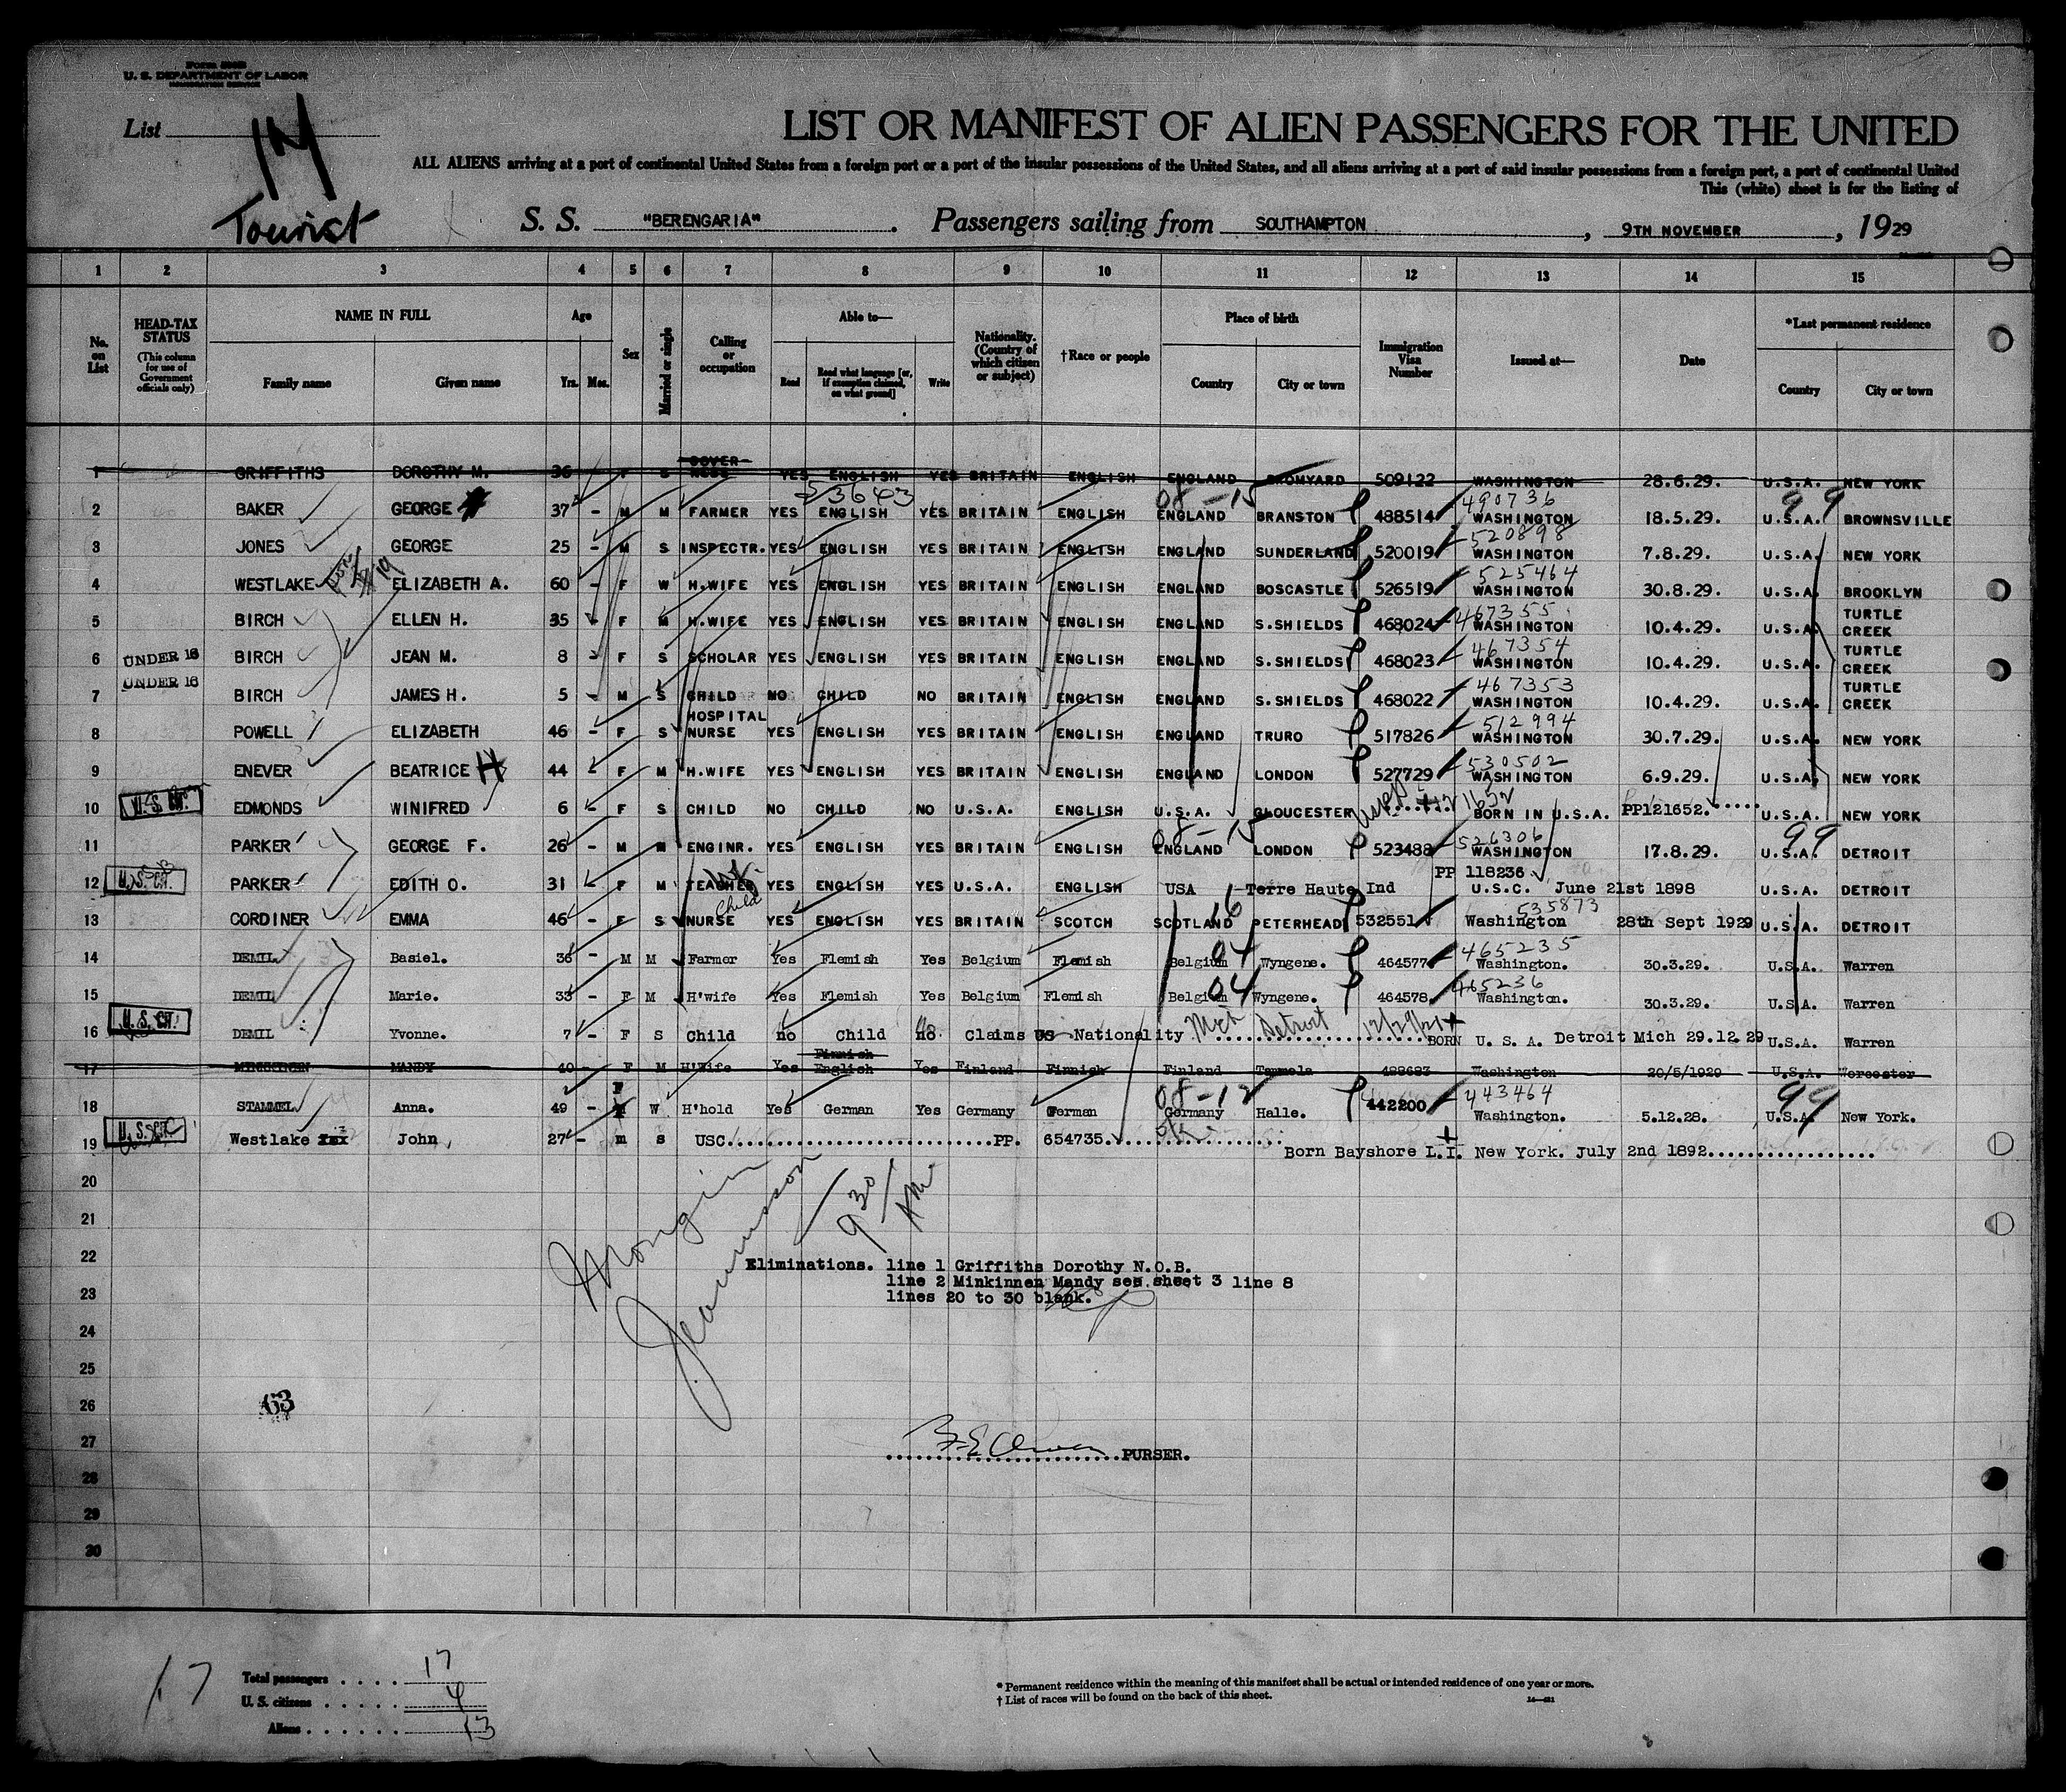 U. S. DEPARTMENT OF LABOR
IMMIGRATION SERVICE
List 14
Tourist
LIST OR MANIFEST OF ALIEN PASSENGERS FOR THE UNITED
ALL ALIENS arriving at a port of continental United States from a foreign port or a port of the insular possessions of the United States, and all aliens arriving at a port of said insular possessions from a foreign port, a port of continental United
This (white) sheet is for the listing of
S. S. "BERENGARIA". Passengers sailing from SOUTHAMPTON, 9TH NOVEMBER, 1929
1 2 3 4 5 6 7 8 9 10 11 12 13 14 15
No. on List
HEAD-TAX STATUS (This column for use of Government officials only)
NAME IN FULL Family name Given name
Age Yrs. Mos.
Sex
Married or single
Calling or occupation
Able to— Read Read what language [or, if exemption claimed, on what ground] Write
Nationality. (Country of which citizen or subject)
†Race or people
Place of birth Country City or town
Immigration Visa Number
Issued at—
Date
*Last permanent residence Country City or town
1 GRIFFITHS DOROTHY M. 36 F S GOVER-NESS YES ENGLISH YES BRITAIN ENGLISH ENGLAND BROMYARD 509122 WASHINGTON 28.6.29. U.S.A. NEW YORK
53643 08-15 490736 99
2 BAKER GEORGE 37 - M M FARMER YES ENGLISH YES BRITAIN ENGLISH ENGLAND BRANSTON 488514 WASHINGTON 18.5.29. U.S.A. BROWNSVILLE
520898
3 JONES GEORGE 25 - M S INSPECTR. YES ENGLISH YES BRITAIN ENGLISH ENGLAND SUNDERLAND 520019 WASHINGTON 7.8.29. U.S.A. NEW YORK
525464
4 WESTLAKE ELIZABETH A. 60 - F W H.WIFE YES ENGLISH YES BRITAIN ENGLISH ENGLAND BOSCASTLE 526519 WASHINGTON 30.8.29. U.S.A. BROOKLYN
467355
5 BIRCH ELLEN H. 35 - F M H.WIFE YES ENGLISH YES BRITAIN ENGLISH ENGLAND S.SHIELDS 468024 WASHINGTON 10.4.29. U.S.A. TURTLE CREEK
467354
6 UNDER 16 BIRCH JEAN M. 8 - F S SCHOLAR YES ENGLISH YES BRITAIN ENGLISH ENGLAND S.SHIELDS 468023 WASHINGTON 10.4.29. U.S.A. TURTLE CREEK
467353
7 UNDER 16 BIRCH JAMES H. 5 - M S CHILD NO CHILD NO BRITAIN ENGLISH ENGLAND S.SHIELDS 468022 WASHINGTON 10.4.29. U.S.A. TURTLE CREEK
512994
8 POWELL ELIZABETH 46 - F S HOSPITAL NURSE YES ENGLISH YES BRITAIN ENGLISH ENGLAND TRURO 517826 WASHINGTON 30.7.29. U.S.A. NEW YORK
530502
9 ENEVER BEATRICE H 44 - F M H.WIFE YES ENGLISH YES BRITAIN ENGLISH ENGLAND LONDON 527729 WASHINGTON 6.9.29. U.S.A. NEW YORK
10 U.S. CIT. EDMONDS WINIFRED 6 - F S CHILD NO CHILD NO U.S.A. ENGLISH U.S.A. GLOUCESTER BORN IN U.S.A. PP121652. U.S.A. NEW YORK
08-15 526306 99
11 PARKER GEORGE F. 26 - M M ENGINR. YES ENGLISH YES BRITAIN ENGLISH ENGLAND LONDON 523488 WASHINGTON 17.8.29. U.S.A. DETROIT
PP 118236
12 U.S. CIT. PARKER EDITH O. 31 F M TEACHER YES ENGLISH YES U.S.A. ENGLISH USA Terre Haute Ind U.S.C. June 21st 1898 U.S.A. DETROIT
Child 16 535873
13 CORDINER EMMA 46 - F S NURSE YES ENGLISH YES BRITAIN SCOTCH SCOTLAND PETERHEAD 532551 Washington 28th Sept 1929 U.S.A. DETROIT
04 465235
14 DEMIL Basiel. 36 - M M Farmer Yes Flemish Yes Belgium Flemish Belgium Wyngene. 464577 Washington. 30.3.29. U.S.A. Warren
04 465236
15 DEMIL Marie. 33 - F M H'wife Yes Flemish Yes Belgium Flemish Belgium Wyngene. 464578 Washington. 30.3.29. U.S.A. Warren
Mich Detroit 12/29/21
16 U.S. CIT. DEMIL Yvonne. 7 - F S Child no Child no Claims US Nationality BORN U. S. A. Detroit Mich 29.12.29 U.S.A. Warren
17 MINKINNEN MANDY 40 - F M H'wife Yes Finnish English Yes Finland Finnish Finland Tammela 488683 Washington 20/5/1929 U.S.A. Worcester
F 08-12 443464 99
18 STAMMEL Anna. 49 - W H'hold Yes German Yes Germany German Germany Halle. 442200 Washington. 5.12.28. U.S.A. New York.
19 U.S. CIT. Westlake John, 27 - m s USC. PP. 654735
Born Bayshore L.I. New York. July 2nd 1892
20
21
9 30 / AM
22
Eliminations. line 1 Griffiths Dorothy N.O.B.
line 2 Minkinnen Mandy see sheet 3 line 8
23
lines 20 to 30 blank.
24
25
26
63
27
PURSER.
28
29
30
17
Total passengers 17
U. S. citizens 4
Aliens 13
* Permanent residence within the meaning of this manifest shall be actual or intended residence of one year or more.
† List of races will be found on the back of this sheet.